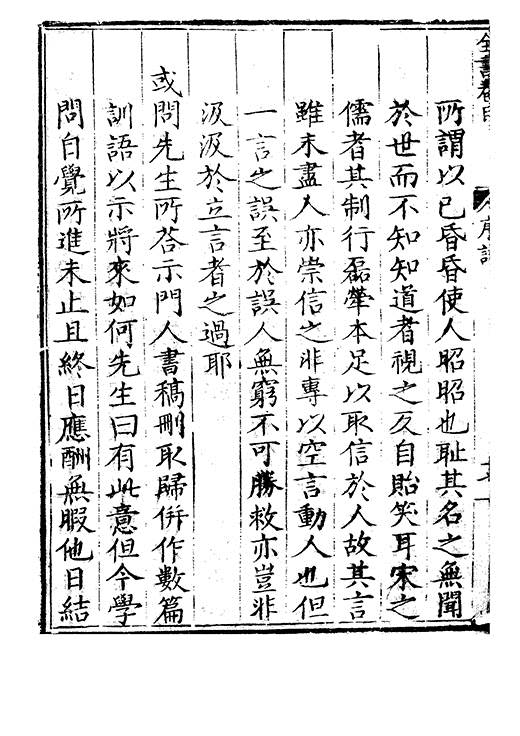 所謂以己昏昏使人昭昭也耻其名之無聞
於世而不知知道者視之反自貽笑耳宋之
儒者其制行磊犖本足以取信於人故其言
雖未盡人亦崇信之非專以空言動人也但
一言之誤至於誤人無窮不可勝救亦豈非
汲汲於立言者之過耶
或問先生所荅示門人書稿刪取歸併作數篇
訓語以示將來如何先生曰有此意但今學
問自覺所進未止且終日應酬無暇他日結